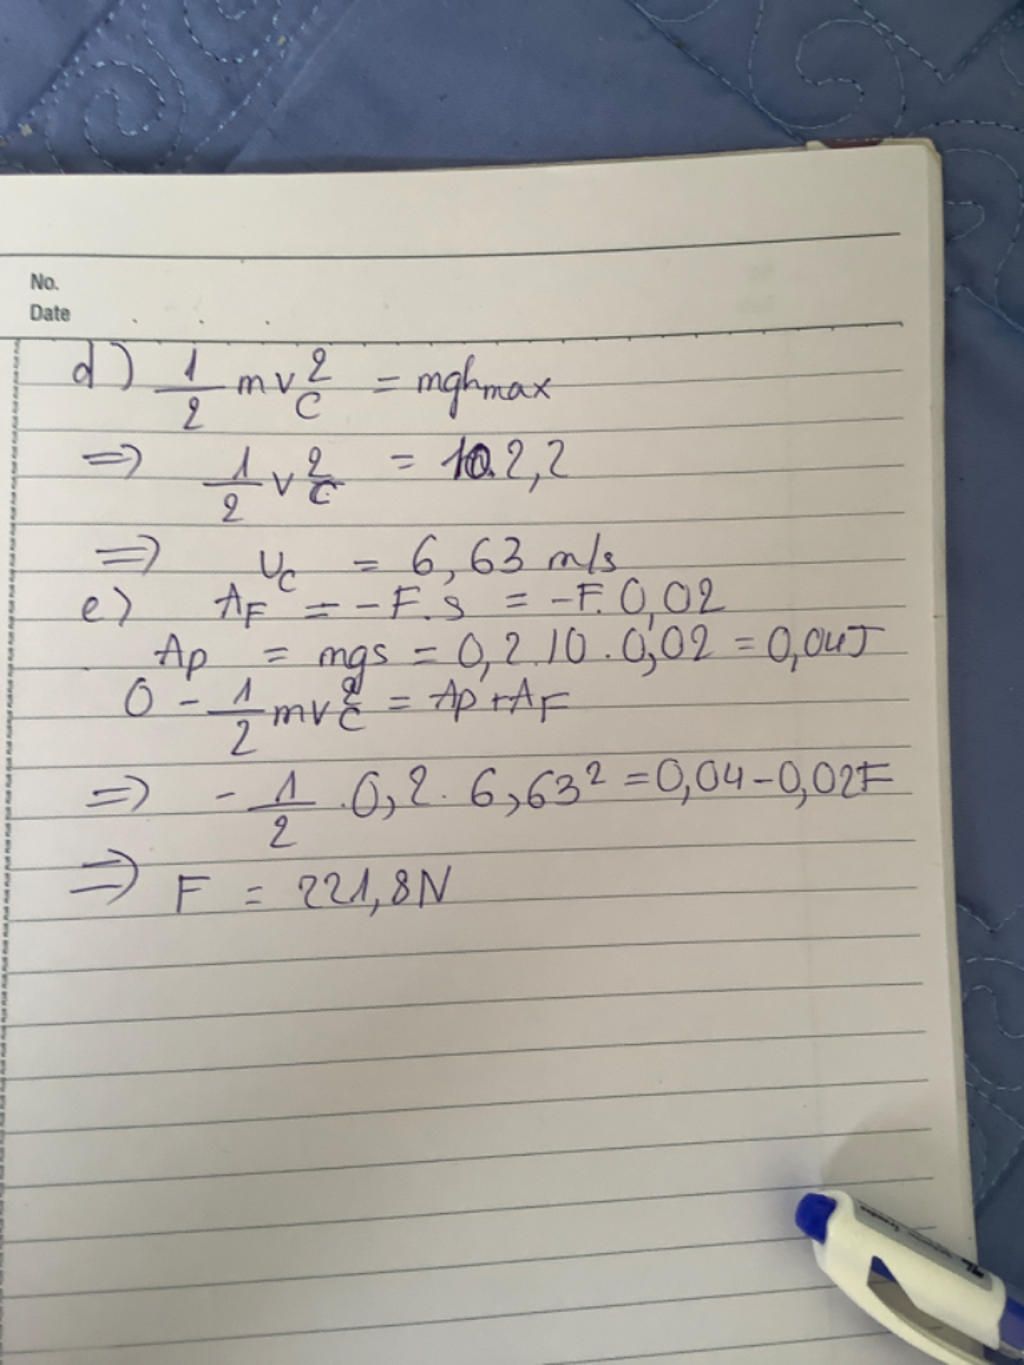 No.
Date
d) 1/2 mv²_C = mgh_max
=> 1/2 v²_C = 10.2,2
=> v_C = 6,63 m/s
e) A_F = -F.s = -F.0,02
A_P = mgs = 0,2.10.0,02 = 0,04J
0 - 1/2 mv²_C = A_P + A_F
=> - 1/2 .0,2. 6,63² = 0,04 - 0,02F
=> F = 221,8N